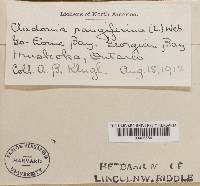 Lichens of North America.
Cladonia rangiferina (L.) Web.
Go-Home Bay, Georgian Bay
Muskoka, Ontario
Coll. A. B. Klugh. Aug. 18, 1912
FARLOW
HARVARD
UNIVERSITY
HERBARIUM OF
LINCOLN W. RIDDLE